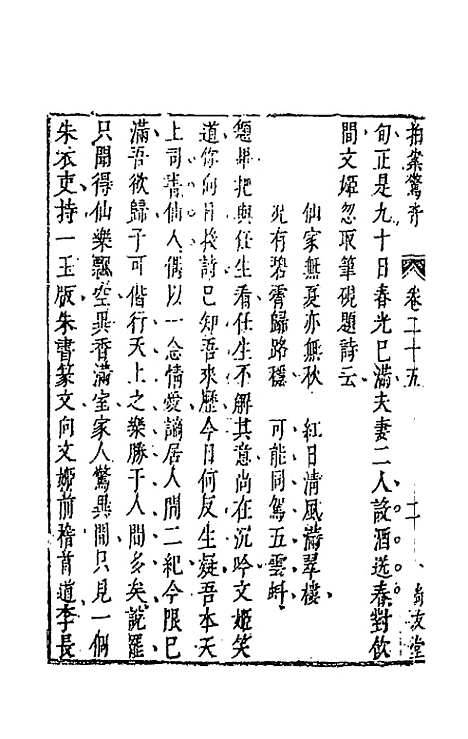 拍案驚奇　卷二十五　二　尚友堂
旬正是九十日春光已滿夫妻二人設酒送春對飲
間文姬忽取筆硯題詩云
仙家無夏亦無秋　紅日清風滿翠樓
況有碧霄歸路穩　可能同駕五雲虬
題畢把與任生看任生不解其意尚在沉吟文姬笑
道你向日投詩已知吾來歷今日何反生疑吾本天
上司書仙人偶以一念情愛謫居人間二紀今限已
滿吾欲歸子可偕行天上之樂勝于人間多矣說罷
只聞得仙樂飄空異香滿室家人驚異間只見一個
朱衣吏持一玉版朱書篆文向文姬前稽首道李長